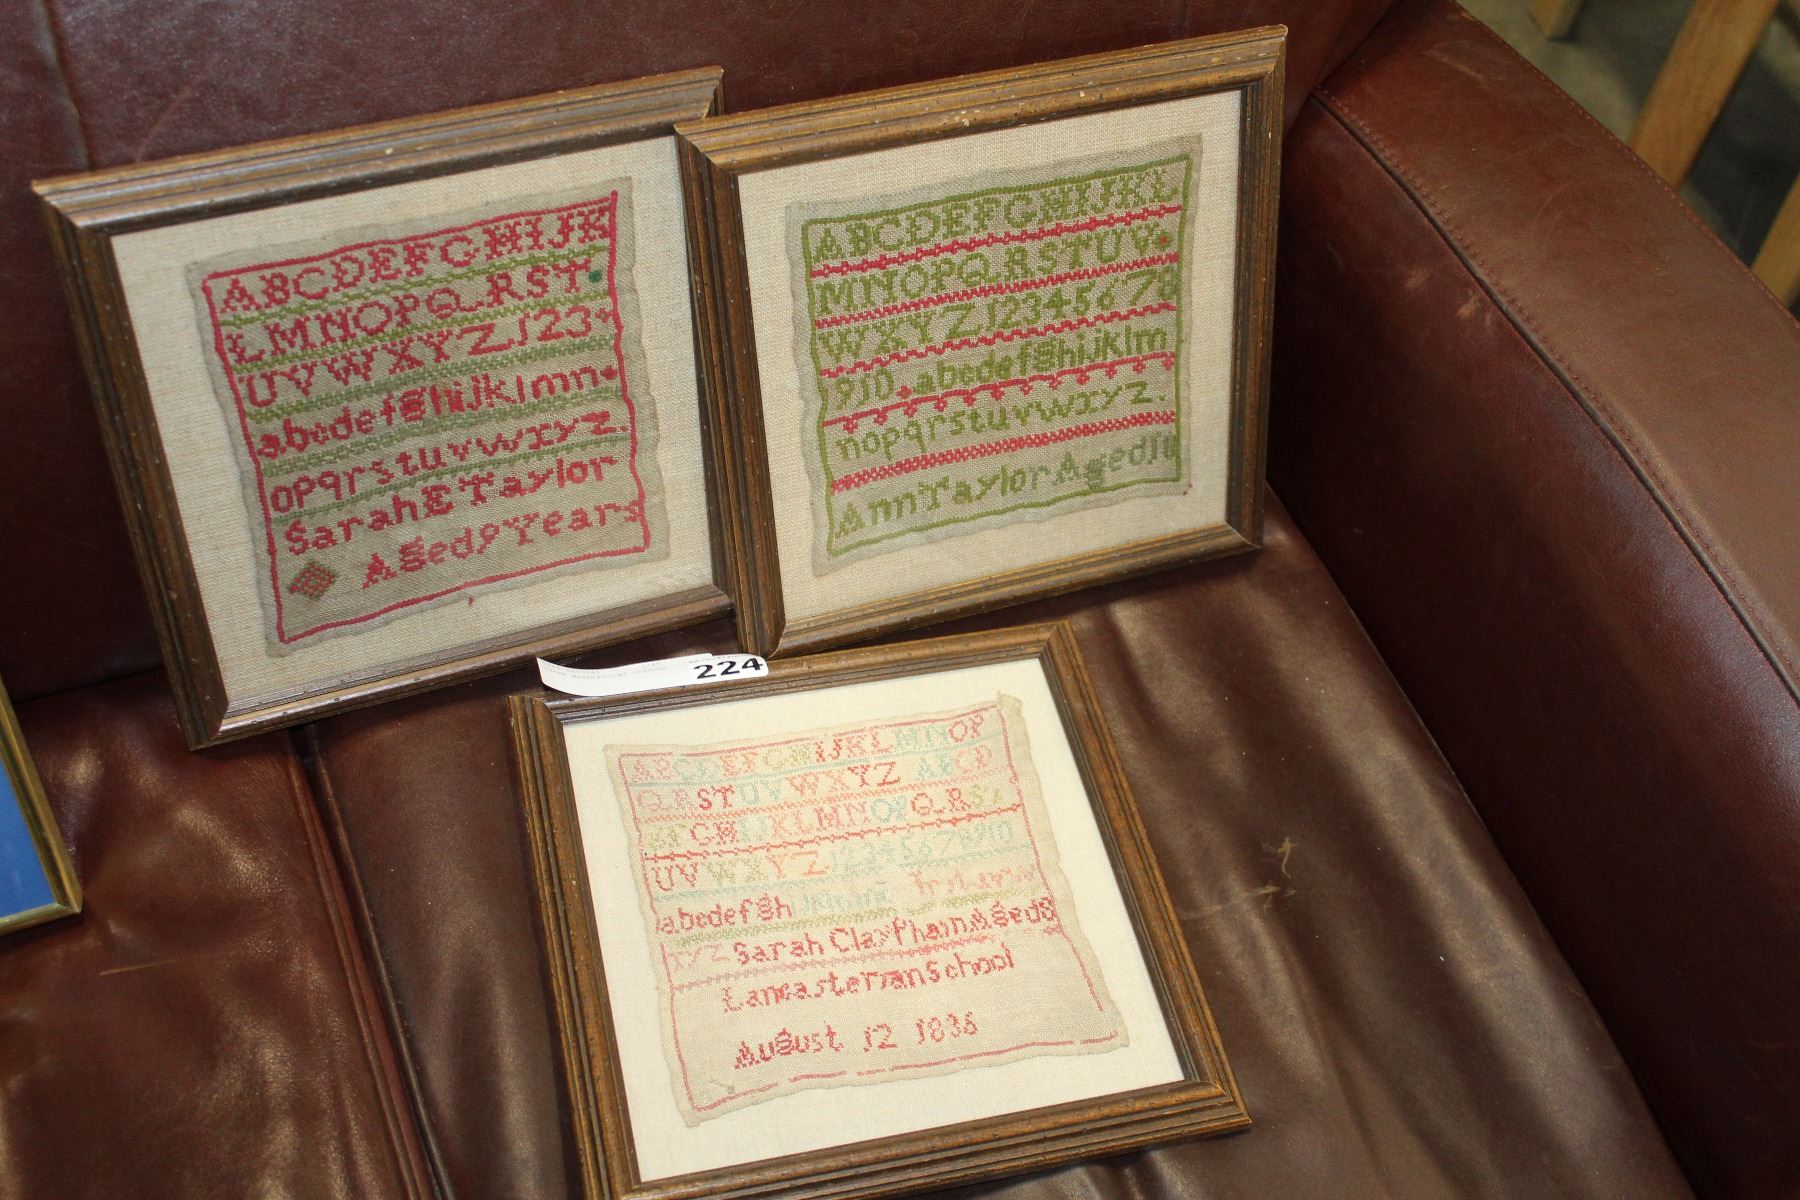 ABCDEFGHIJK
LMNOPQRST
UVWXYZ123
abcdefghijklmn
opqrstuvwxyz.
Sarah E Taylor
Aged 9 Years
ABCDEFGHIJKL
MNOPQRSTUV
WXYZ12345678
910 abcdefghijklm
nopqrstuvwxyz.
Ann Taylor Aged 10
224
ABCDEFGHIJKLMNOP
QRSTUVWXYZ ABCD
GHIJKLMNOPQRST
UVWXYZ 12345678910
abcdefgh
xyz Sarah ClayPham Aged 8
Lancasterian School
August 12 1836